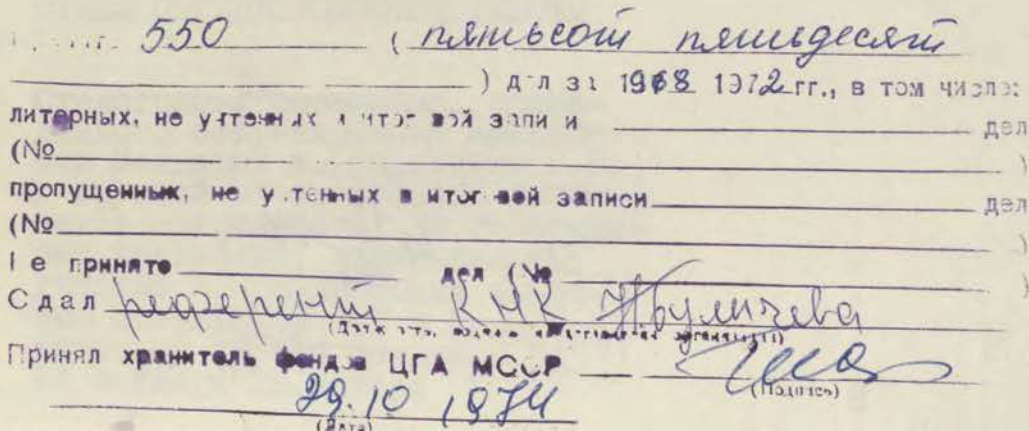 550 ( пятьсот пятьдесят
) дел за 1968 1972 гг., в том числе:
литерных, не учтенных в итоговой записи дел
(№ )
пропущенных, не учтенных в итоговой записи дел
(№ )
Не принято дел (№ )
Сдал референт КНК
(Должность, подпись организации)
Принял хранитель фондов ЦГА МССР
(Подпись)
29.10 1974
(Дата)